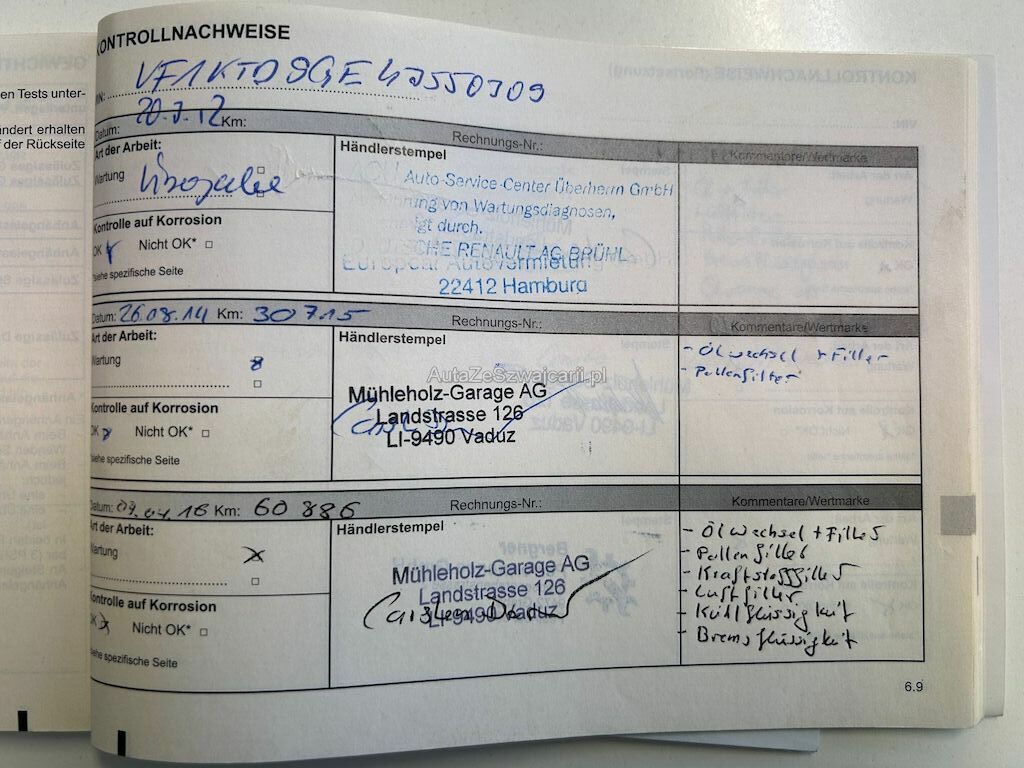 en Tests unter-
ndert erhalten
f der Rückseite
KONTROLLNACHWEISE
VIN: VF1KTD9GE47550709
Datum: 20.7.12 Km:
Rechnungs-Nr.:
Kommentare/Wertmarke
Art der Arbeit:
Wartung
Händlerstempel
Auto-Service-Center Überherrn GmbH
rung von Wartungsdiagnosen,
gt durch.
DEUTSCHE RENAULT AG BRÜHL.
Europcar Autovermietung
22412 Hamburg
Kontrolle auf Korrosion
OK Nicht OK*
siehe spezifische Seite
Datum: 26.08.14 Km: 30715
Rechnungs-Nr.:
Kommentare/Wertmarke
Art der Arbeit:
Wartung
Händlerstempel
Mühleholz-Garage AG
Landstrasse 126
LI-9490 Vaduz
- Ölwechsel + Filter
- Pollenfilter
AutaZeSzwajcarii.pl
Kontrolle auf Korrosion
OK Nicht OK*
siehe spezifische Seite
Datum: 07.04.16 Km: 60886
Rechnungs-Nr.:
Kommentare/Wertmarke
Art der Arbeit:
Wartung
Händlerstempel
Mühleholz-Garage AG
Landstrasse 126
LI-9490 Vaduz
- Ölwechsel + Filter
- Pollenfilter
- Kraftstofffilter
- Luftfilter
- Kühlflüssigkeit
- Bremsflüssigkeit
Kontrolle auf Korrosion
OK Nicht OK*
siehe spezifische Seite
6.9